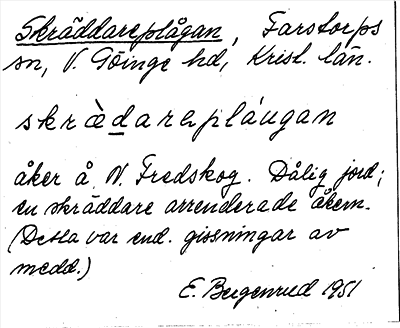 Skräddareplågan, Farstorps
sn, V. Göinge hd, Krist. län.
skrædareplåugan
åker å N. Fredskog. Dålig jord;
en skräddare arrenderade åkern.
(Detta var enl. gissningar av
medd.)
E. Bergenrud 1951